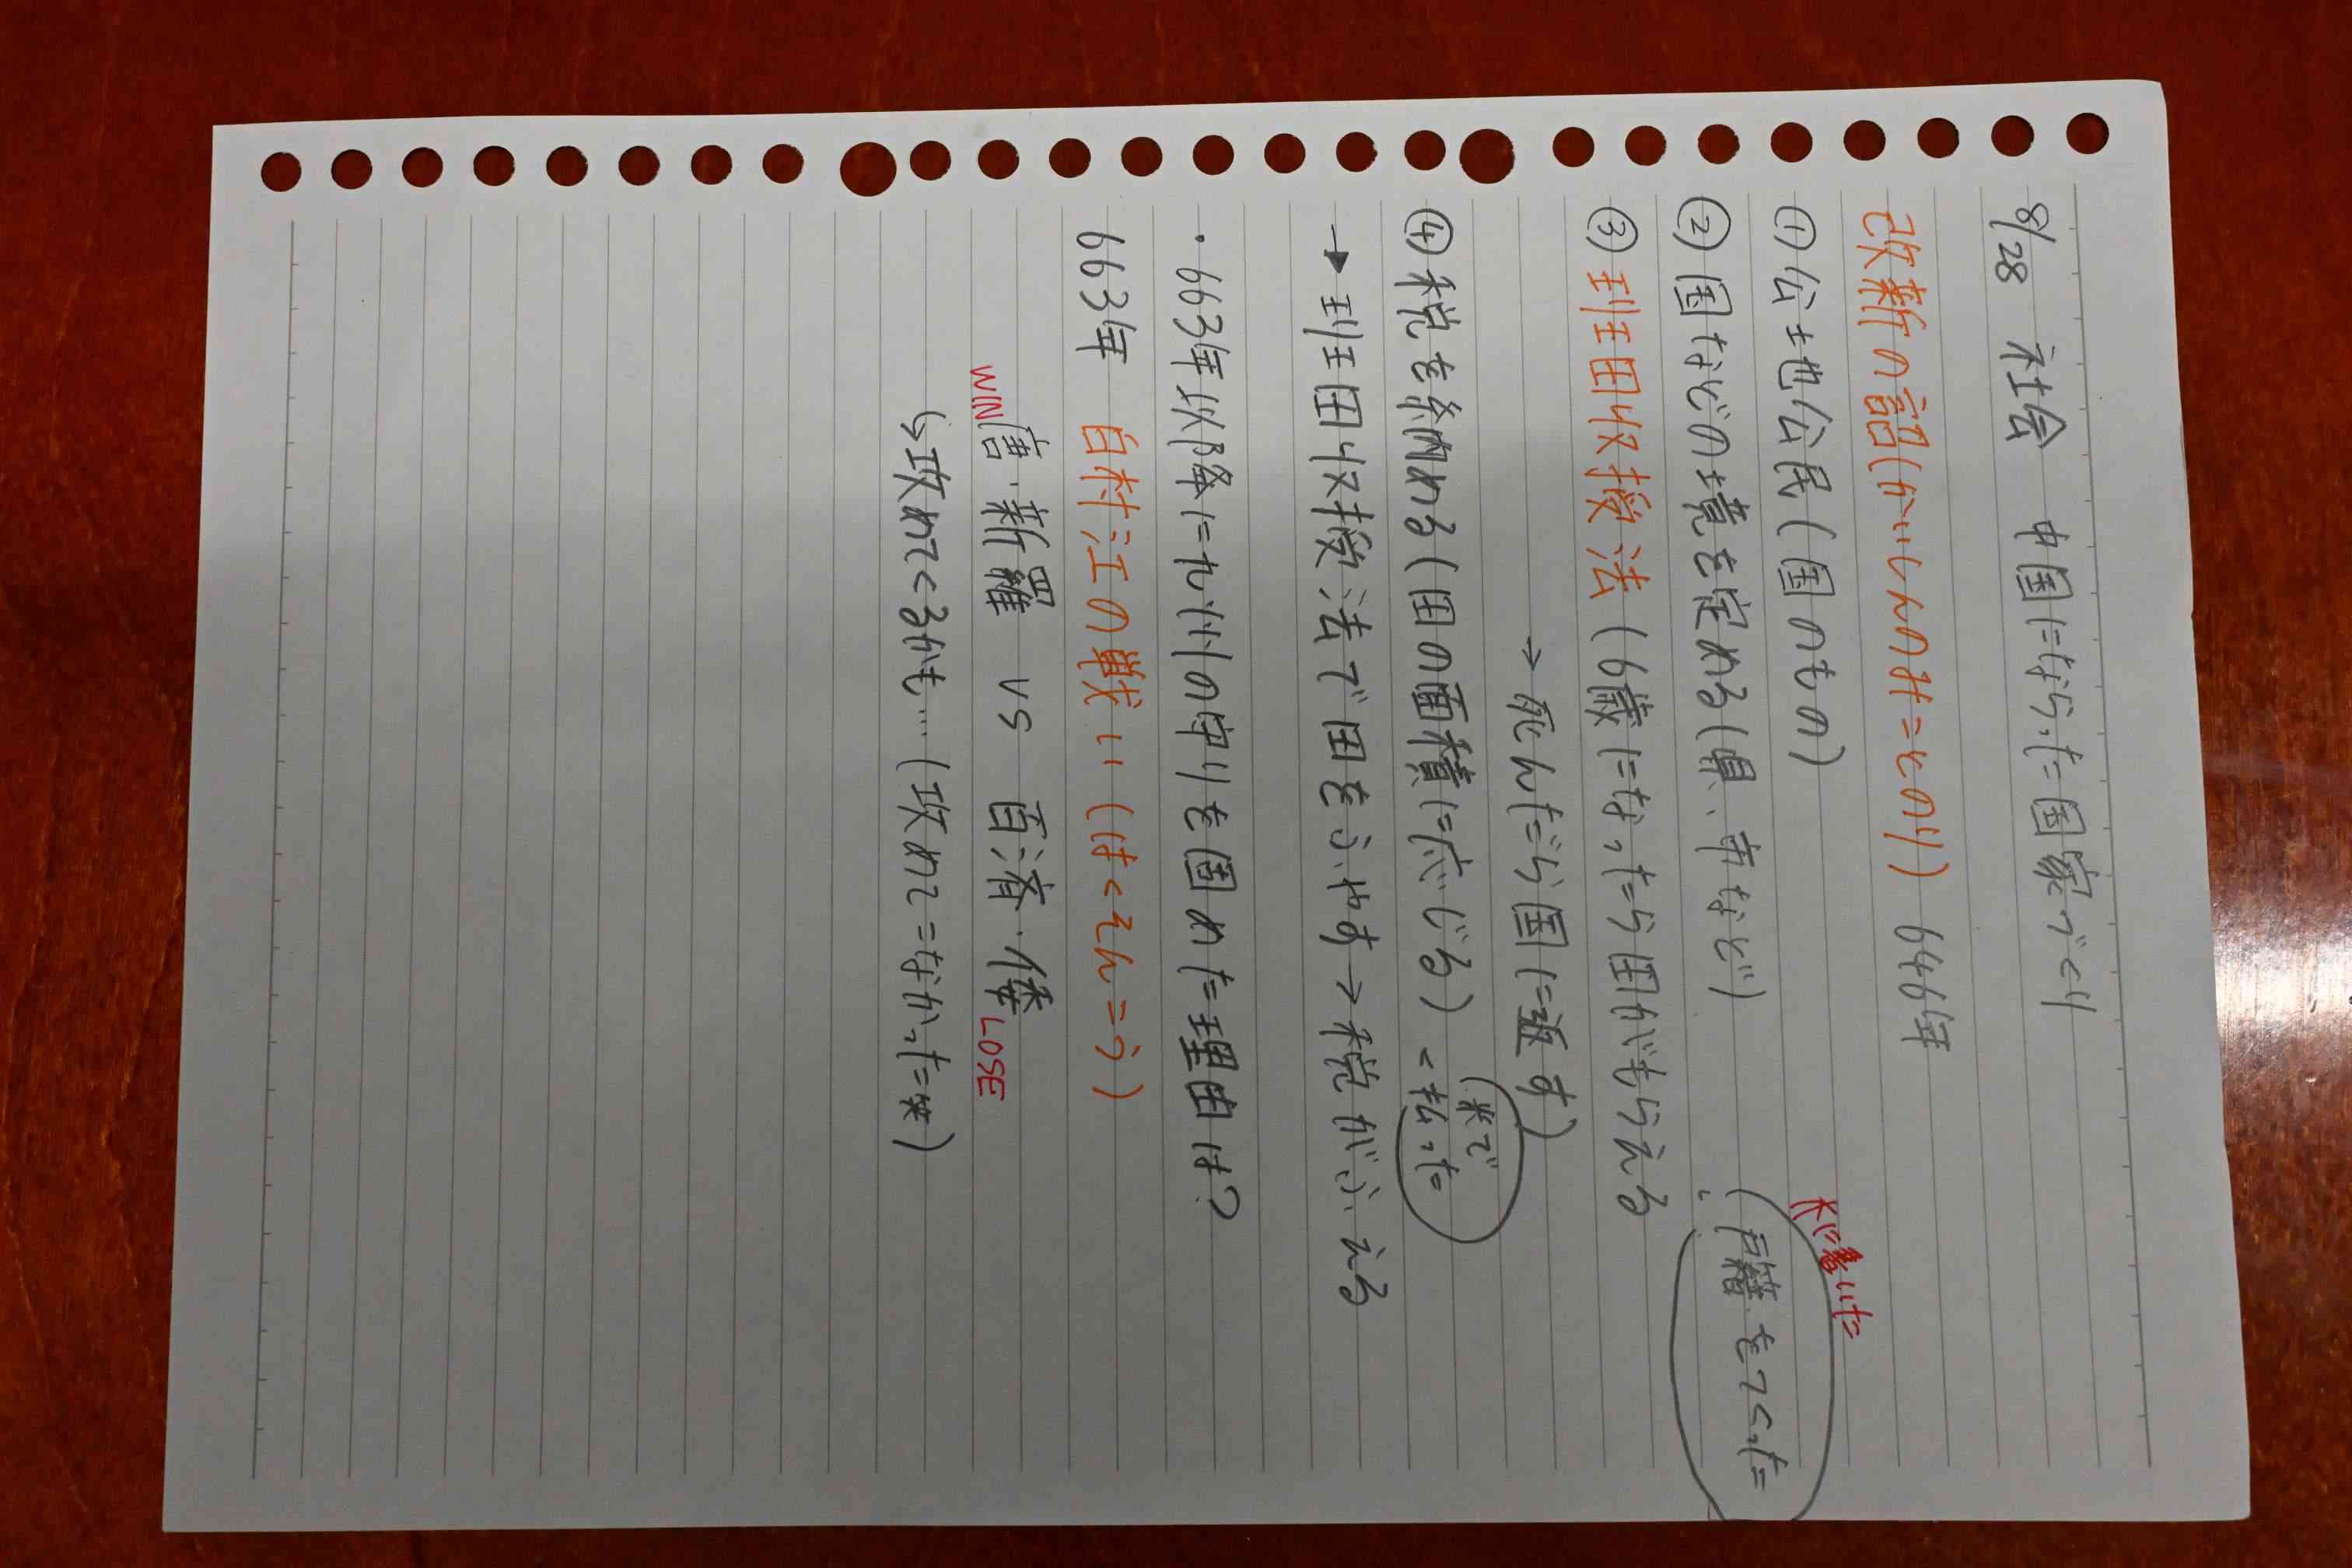 8/28 社会 中国にならった国家づくり
改新の詔(かいしんのみことのり) 646年
①公地公民(国のもの)
②国などの境を定める(県、市など)
(戸籍をつくった
③班田収授法(6歳になったら田がもらえる
→死んだら国に返す)
④税を納める(田の面積に応じる)
(米で払った
→班田収授法で田をふやす→税がふえる
・663年以降に九州の守りを固めた理由は?
663年 白村江の戦い(はくそんこう)
WIN 唐・新羅 vs 百済・倭 LOSE
↳攻めてくるかも…(攻めてこなかった笑)